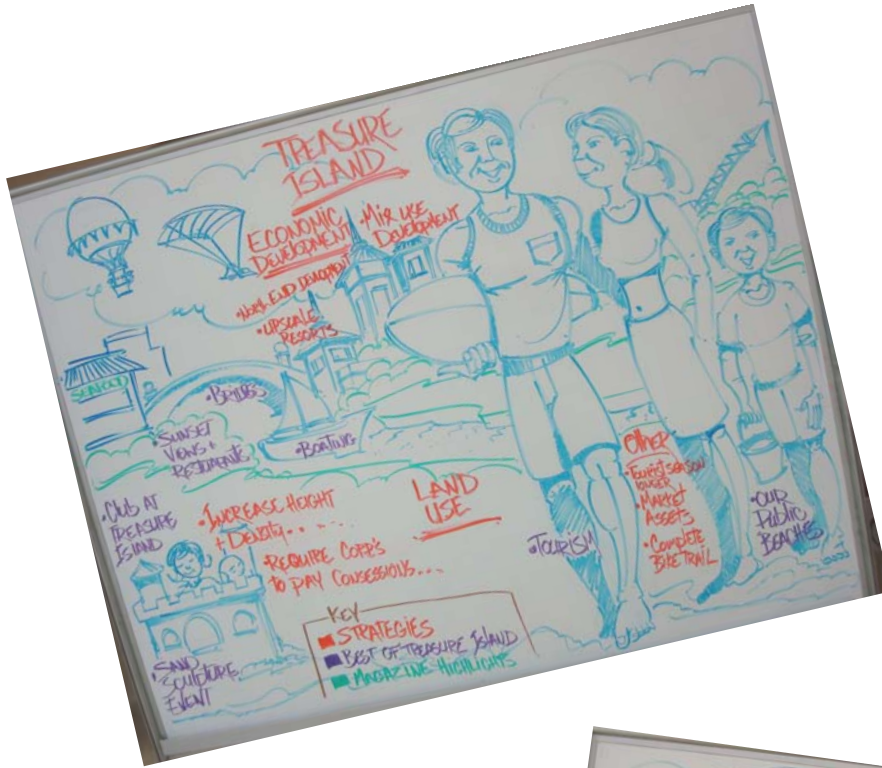 TREASURE
ISLAND
ECONOMIC
DEVELOPMENT
• MIX USE
DEVELOPMENT
• NORTH END DEVELOPMENT
• UPSCALE
RESORTS
SEAFOOD
• BRIDGES
• SUNSET
VIEWS +
RESTAURANTS
• BOATING
• CLUB AT
TREASURE
ISLAND
• INCREASE HEIGHT
+ DENSITY
• REQUIRE CORP'S
TO PAY CONSESSIONS...
LAND
USE
OTHER
• TOURIST SEASON
LONGER
• MARKET
ASSETS
• COMPLETE
BIKE TRAIL
• TOURISM
• OUR
PUBLIC
BEACHES
• SAND
SCULPTURE
EVENT
KEY
STRATEGIES
BEST OF TREASURE ISLAND
MAGAZINE HIGHLIGHTS